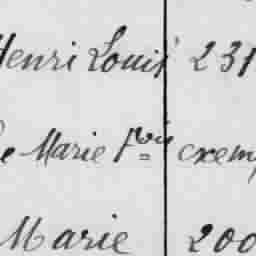 Henri Louis 231
e Marie Fçoise exemp
Marie 200